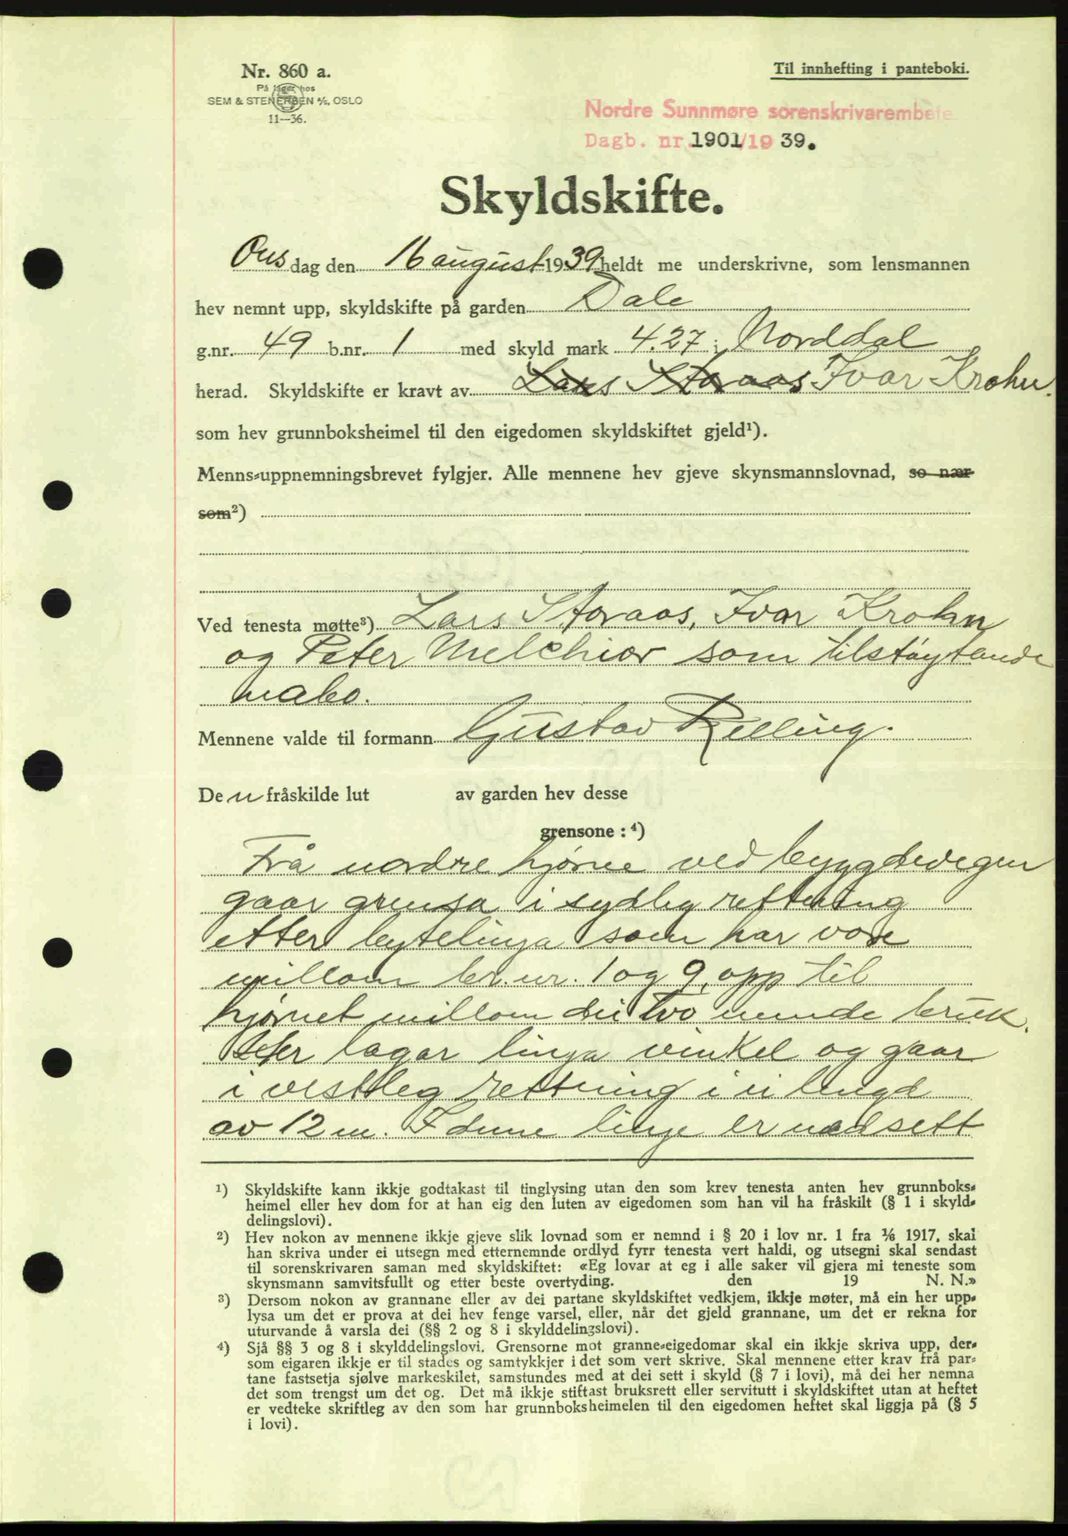 Nr. 860 a.
På lager hos
SEM & STENERSEN A/S, OSLO
11—36.
Til innhefting i panteboki.
Nordre Sunnmøre sorenskrivarembete
Dagb. nr. 1901/19 39.
Skyldskifte.
Onsdag den 16 august 1939 heldt me underskrivne, som lensmannen
hev nemnt upp, skyldskifte på garden Dale
g.nr. 49 b.nr. 1 med skyld mark 4.27 i Norddal
herad. Skyldskifte er kravt av Lars Storaas Ivar Krohn.
som hev grunnboksheimel til den eigedomen skyldskiftet gjeld¹).
Menns-uppnemningsbrevet fylgjer. Alle mennene hev gjeve skynsmannslovnad, so nær
som²)
Ved tenesta møtte³) Lars Storaas, Ivar Krohn
og Peter Melchior som tilstøytande
nabo.
Mennene valde til formann Gustav Relling.
De n fråskilde lut av garden hev desse
grensone : ⁴)
Frå nordre hjørne ved bygdevegen
gaar grensa i sydleg rettning
etter bytelinja som har vore
millom br. nr. 1 og 9, opp til
hjørnet millom dei tvo nemde bruk.
lagar linja vinkel og gaar
i vestleg rettning i ei lengd
av 12 m. I denne linje er nedsett
¹) Skyldskifte kann ikkje godtakast til tinglysing utan den som krev tenesta anten hev grunnboks-
heimel eller hev dom for at han eig den luten av eigedomen som han vil ha fråskilt (§ 1 i skyld-
delingslovi).
²) Hev nokon av mennene ikkje gjeve slik lovnad som er nemnd i § 20 i lov nr. 1 fra ⅙ 1917, skal
han skriva under ei utsegn med etternemnde ordlyd fyrr tenesta vert haldi, og utsegni skal sendast
til sorenskrivaren saman med skyldskiftet: «Eg lovar at eg i alle saker vil gjera mi teneste som
skynsmann samvitsfullt og etter beste overtyding. den 19 N. N.»
³) Dersom nokon av grannane eller av dei partane skyldskiftet vedkjem, ikkje møter, må ein her upp-
lysa um det er prova at dei hev fenge varsel, eller, når det gjeld grannane, um det er rekna for
uturvande å varsla dei (§§ 2 og 8 i skylddelingslovi).
⁴) Sjå §§ 3 og 8 i skylddelingslovi. Grensorne mot granne-eigedomar skal ein ikkje skriva upp, der-
som eigaren ikkje er til stades og samtykkjer i det som vert skrive. Skal mennene etter krav frå par-
tane fastsetja sjølve markeskilet, samstundes med at dei sett i skyld (§ 7 i lovi), må dei her nemna
det som trengst um det og. Det må ikkje stiftast bruksrett eller servitutt i skyldskiftet utan at heftet
er vedteke skriftleg av den som har grunnboksheimelen til den eigedomen heftet skal liggja på (§ 5
i lovi).